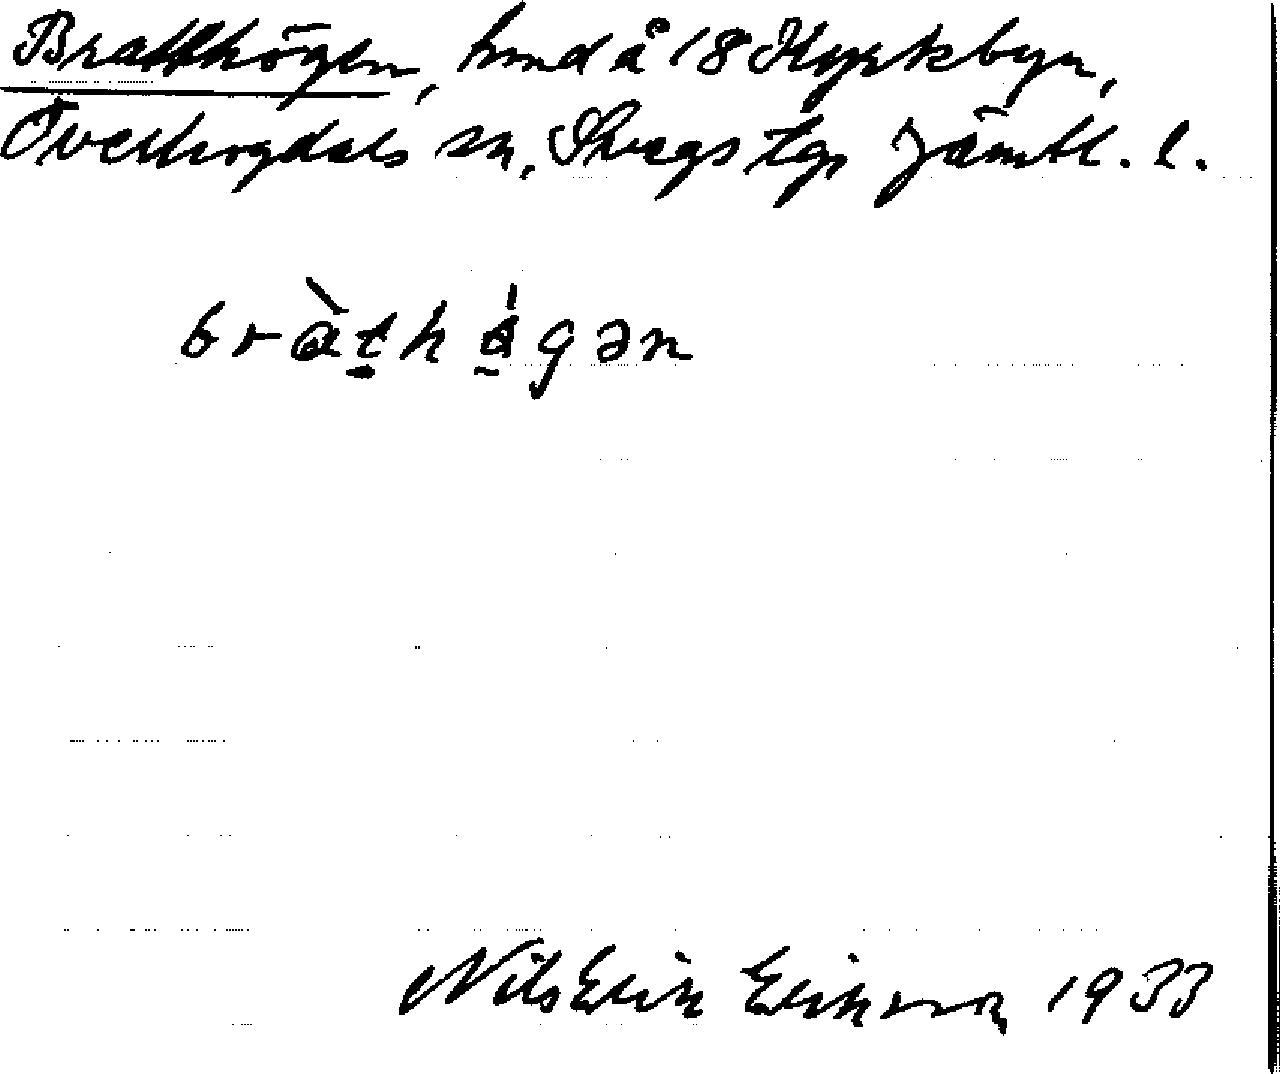 Bratthögen, hmd å 18 Kyrkbyn,
Överhogdals sn, Svegs tg, Jämtl. l.
bràt̠hág̠ən
Nils Erik Erikson 1933